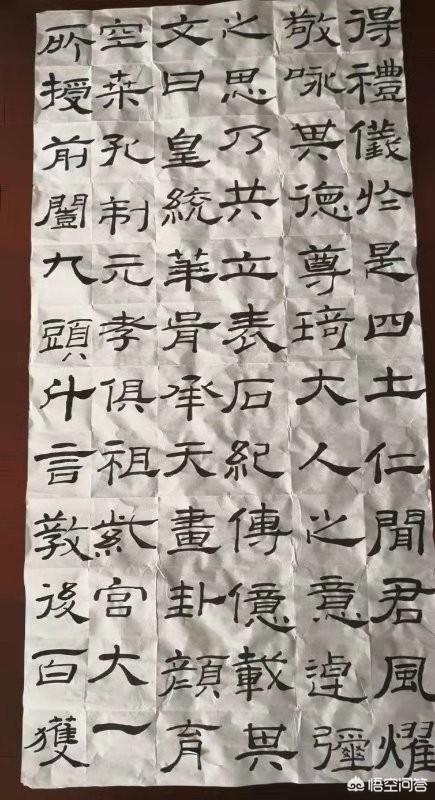 得禮儀於是四土仁聞君風耀
敬咏其德尊琦大人之意逴彌
之思乃共立表石紀傳億載其
文曰皇統華胥承天畫卦顏育
空桑孔制元孝俱祖紫宮大一
所授前闓九頭升言教後百獲
悟空问答